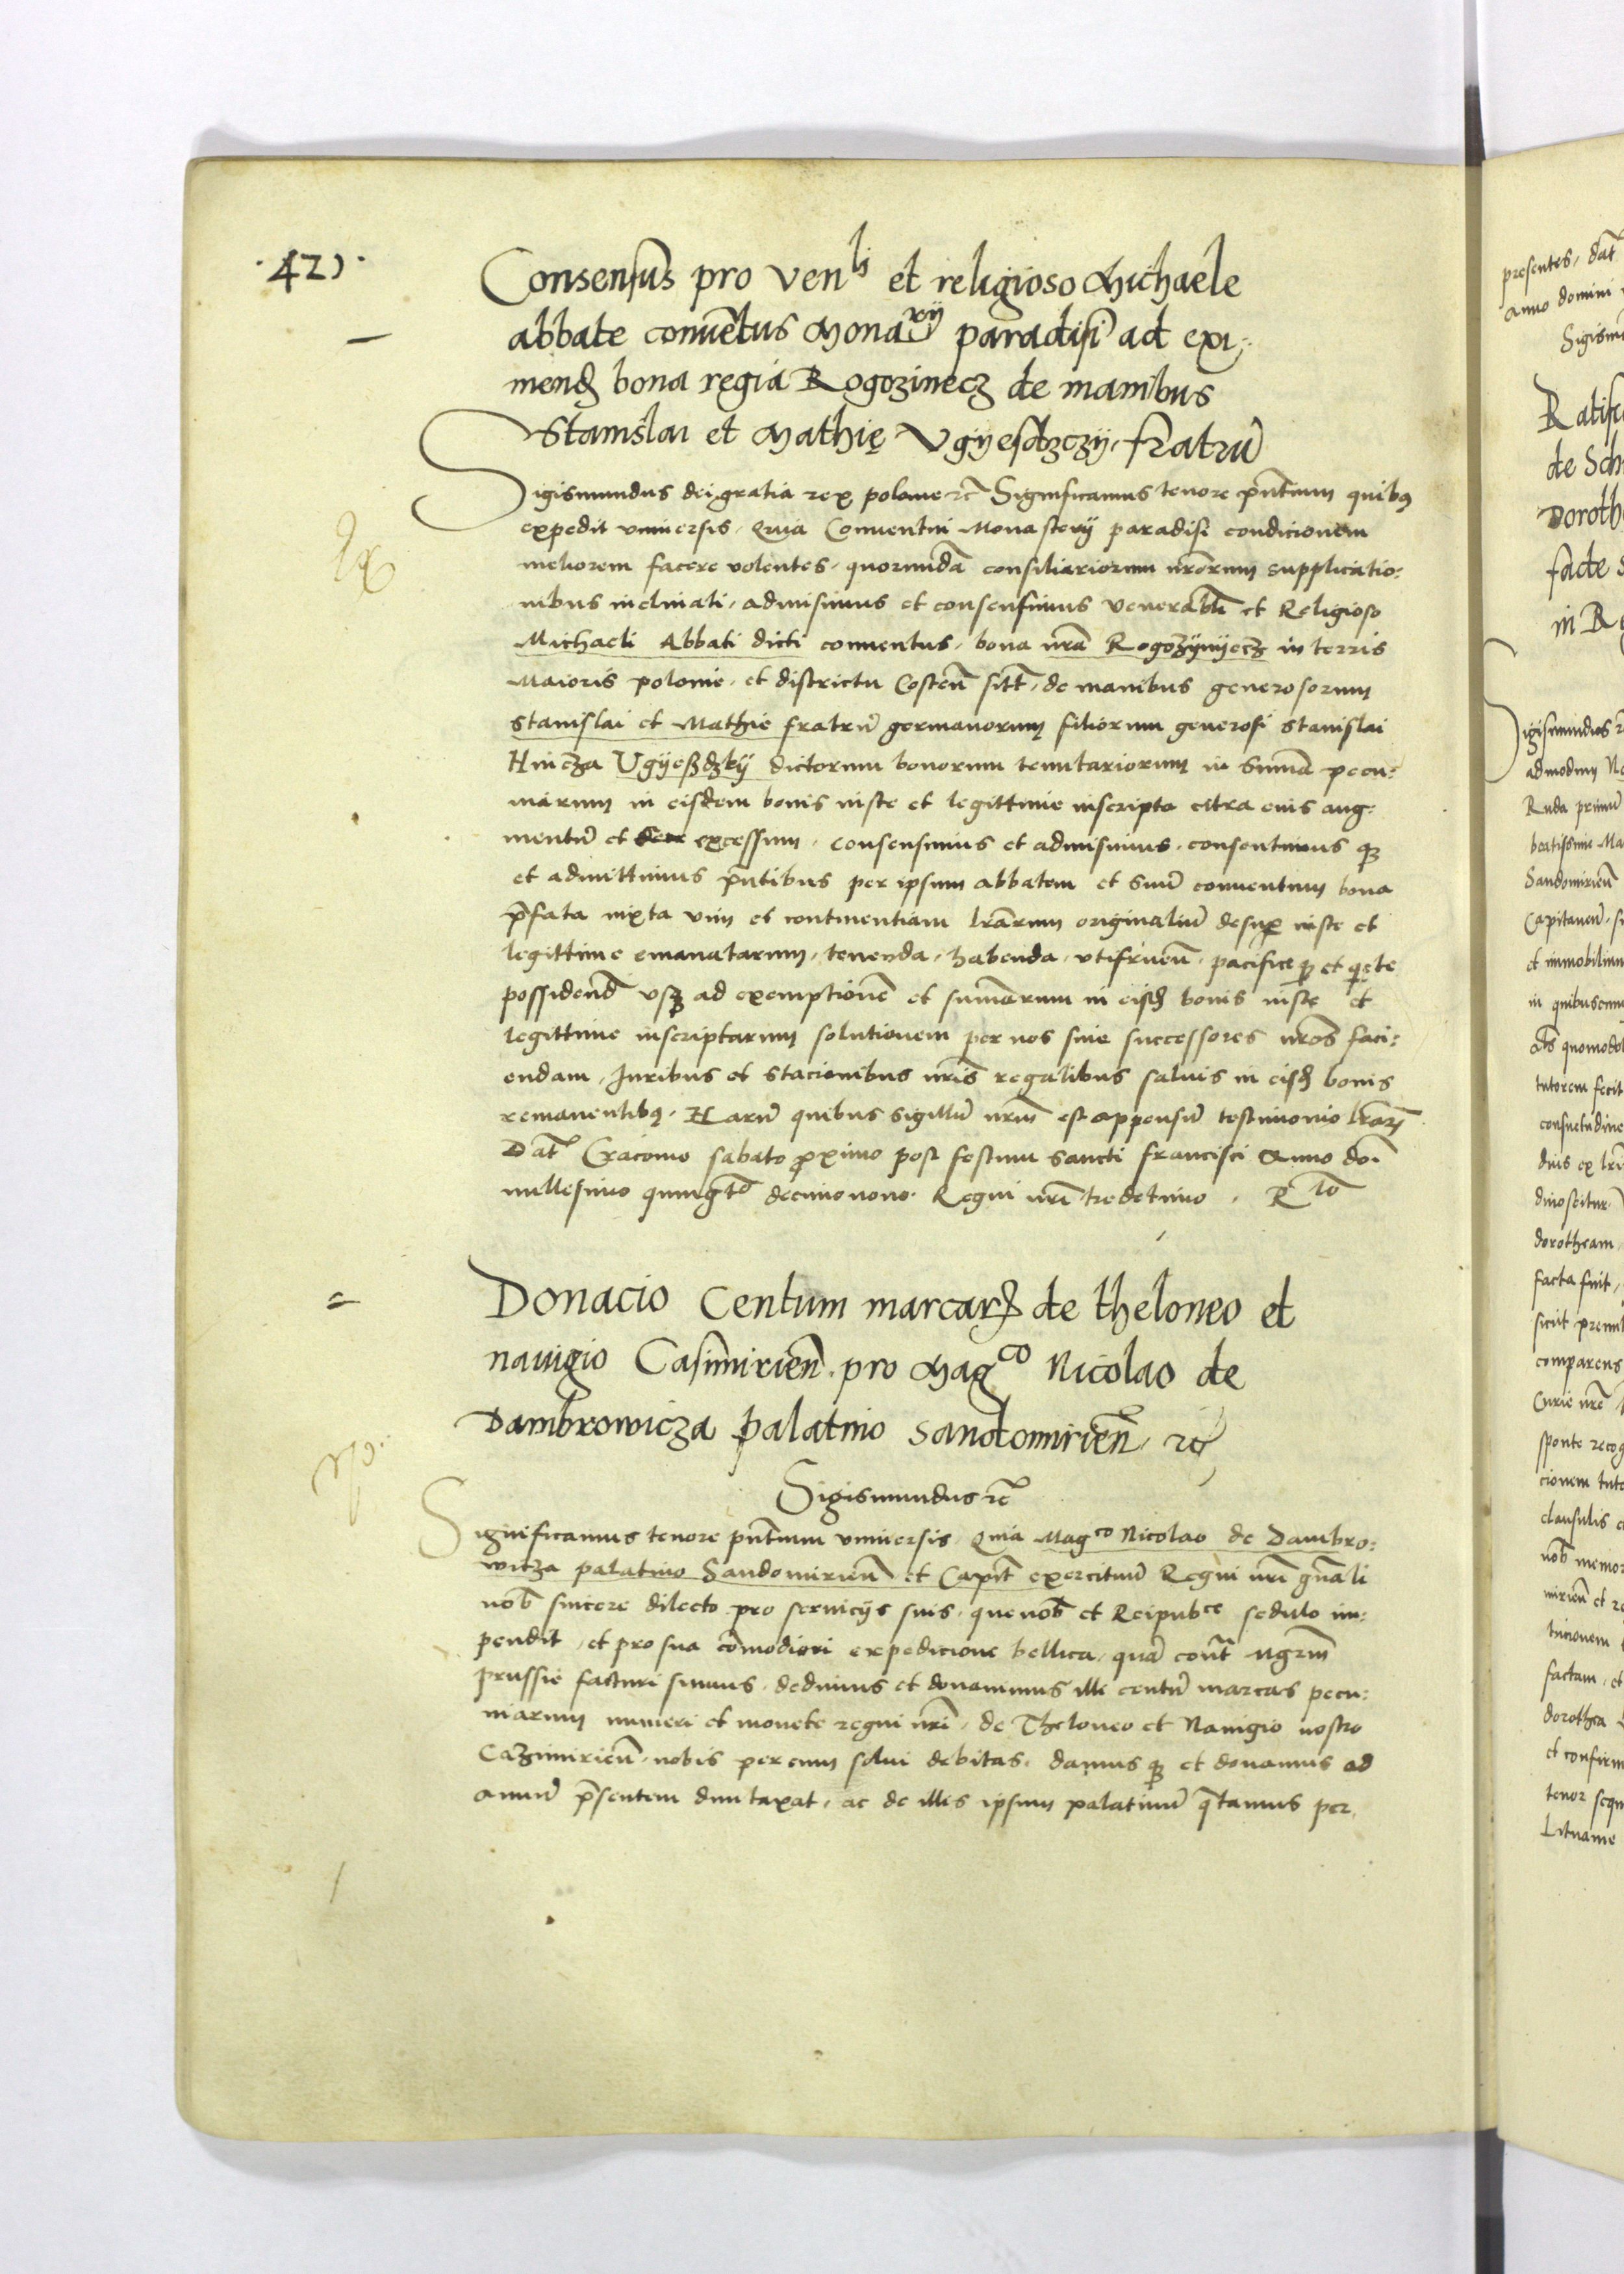 .421.
Consensus pro venli et religioso Michaele
abbate conuētus Monarij paradisi ad exi:
mend bona regia Rogozinecz de manibus
Stanislai et Mathię Vgyesdzczij fratrū
Sigismundus dei gratia rex polonie rc̄ Significamus tenore pn̄tium quibus
expedit vniuersis, Quia Conuentui Monasterij paradisi condicionem
meliorem facere volentes, quorundā consiliariorum nrōrum supplicatio:
nibus inclinati, admisimus et consensimus venerabli et Religioso
Michaeli Abbati dicti conuentus, bona nrā Rogozÿnÿecz in terris
Maioris polonie, et districtu Costeñ sitt̄, de manibus generosorum
stanislai et Mathie fratrū germanorum filiorum generosi stanislai
Hincza Vgÿeszdzkÿ dictorum bonorum tenutariorum in sum̄a pecu:
niarum in eisdem bonis iuste et legittime inscripta citra eius aug:
mentū et excessum, consensimus et admisimus, consentimus qz
et admittimus pn̄tibus per ipsum abbatem et suū conuentum bona
p̄fata iuxta vim et continentiam lrārum originaliū desup iuste et
legittime emanatarum, tenenda, habenda, vtifrueñ, pacifice qz et q̄ete
possidend̄ vsqz ad exemptionē et sum̄arum in eisd bonis iuste et
legittime inscriptarum solutionem per nos siue successores nrōs faci:
endam, Iuribus et stacionibus nrīs regalibus saluis in eisd bonis
remanentibus. Harū quibus sigillū nrm̄ est appensū testimonio lrārz
Dat̄ Cracouie sabato proximo post festum sancti francisci Anno doī
millesimo quingto decimonono. Regni nrī tredecimo. Rto
Donacio Centum marcarz de theloneo et
nauigio Casimirień. pro Magco Nicolao de
Dambrowicza palatino Sandomirień, rc
Sigismundus rc̄
Significamus tenore pn̄tium vniuersis, Quia Magco Nicolao de Dambro:
wicza palatino Sandomirień et Capit̄ exercituū Regni nrī gn̄ali
nob̄ sincere dilecto pro seruicijs suis, que nob̄ et Reipubce sedulo im:
pendit, et pro sua com̄odiori expedicione bellica, quā cont̄ mgrm̄
prussie facturi sumus, dedimus et donauimus illi centū marcas pecu:
niarum numeri et monete regni nrī, de Theloneo et Nauigio nostro
Cazimirień, nobis per eum solui debitas, damus qz et donamus ad
annū p̄sentem dumtaxat, ac de illis ipsum palatinū q̄tamus per
presentes, dat̄
Anno domini
Sigism
Ratifi
de Sch
Doroth
facte
in R
Sigismundus
admodum
Ruda primū
beatissime Ma
Sandomirień
Capitaneū
et immobilium
in quibuscum
quomodol
tutorem fecit
consuetudine
dnīs ex
dinoscitur
dorotheam
facta fuit,
sicut premi
comparens
Curie nrē
sponte recog
cionem tuto
clausulis
nob̄ memor
mirień et
factam, et
dorothea
et confirm
tenor sequ
Lituanie